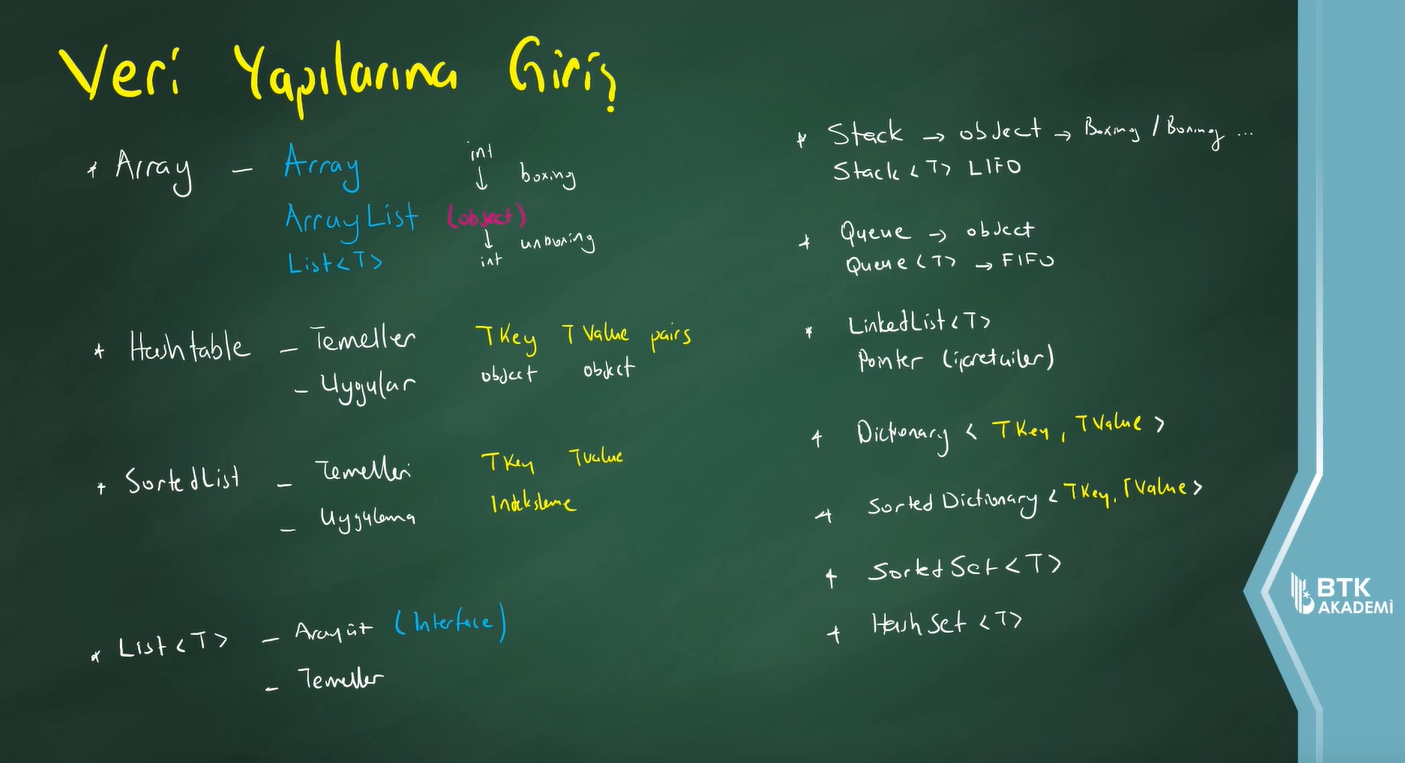 Veri Yapılarına Giriş
* Array - Array
int
↓ boxing
ArrayList (object)
↓ unboxing
List<T> int
* Hashtable - Temeller TKey TValue pairs
- Uygular object object
* SortedList - Temelleri TKey TValue
- Uygulama Indeksleme
* List<T> - Arayüt (Interface)
- Temeller
* Stack → object → Boxing / Boxing ...
Stack<T> LIFO
* Queue → object
Queue<T> → FIFO
* LinkedList<T>
Pointer (işaretçiler)
* Dictionary < TKey, TValue >
* Sorted Dictionary < TKey, TValue >
* SortedSet<T>
* HashSet <T>
BTK
AKADEMİ